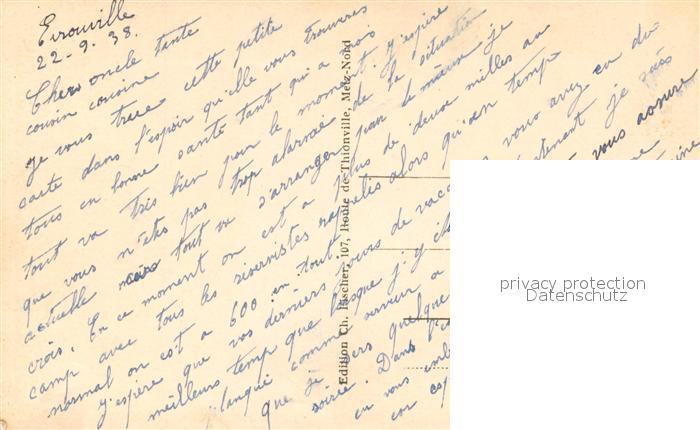 Errouville
22-9.38.
Chers oncle tante
cousin cousine
Je vous trace cette petite
carte dans l'espoir qu'elle vous trouvera
tous en bonne santé tant qu'a nous
tout va très bien pour le moment. J'espère
que vous n'etes pas trop alarmé de la situation
actuelle mais tout va s'arranger pour le mieux je
crois. En ce moment on est a plus de deux milles au
camp avec tous les réservistes rappelés alors qu'en temp
normal on est a 600 en tout.
J'espère que vos derniers jours de vaca vous avez eu du
meilleurs temp que lorsque j'y maintenant je
comme serveur a vous assure
que je sers quelque
soirée. Dans l'es
en vous
Edition Ch. Fischer, 107, Route de Thionville, Metz-Nord
privacy protection
Datenschutz